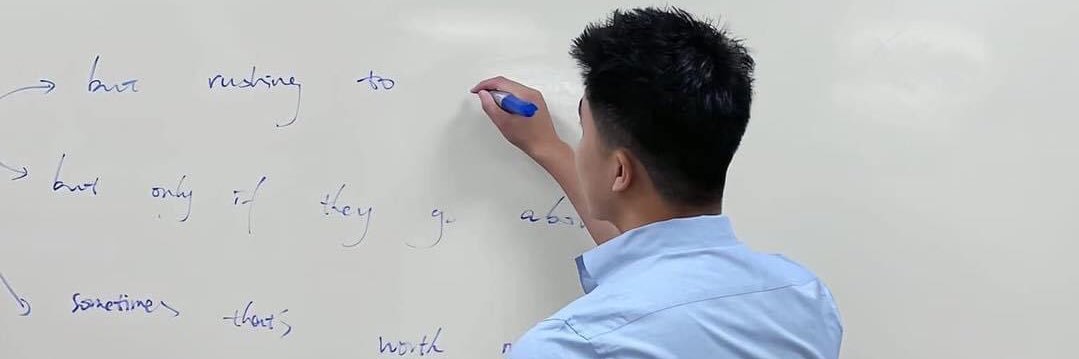 but rushing to
but only if they go
sometimes that's
worth